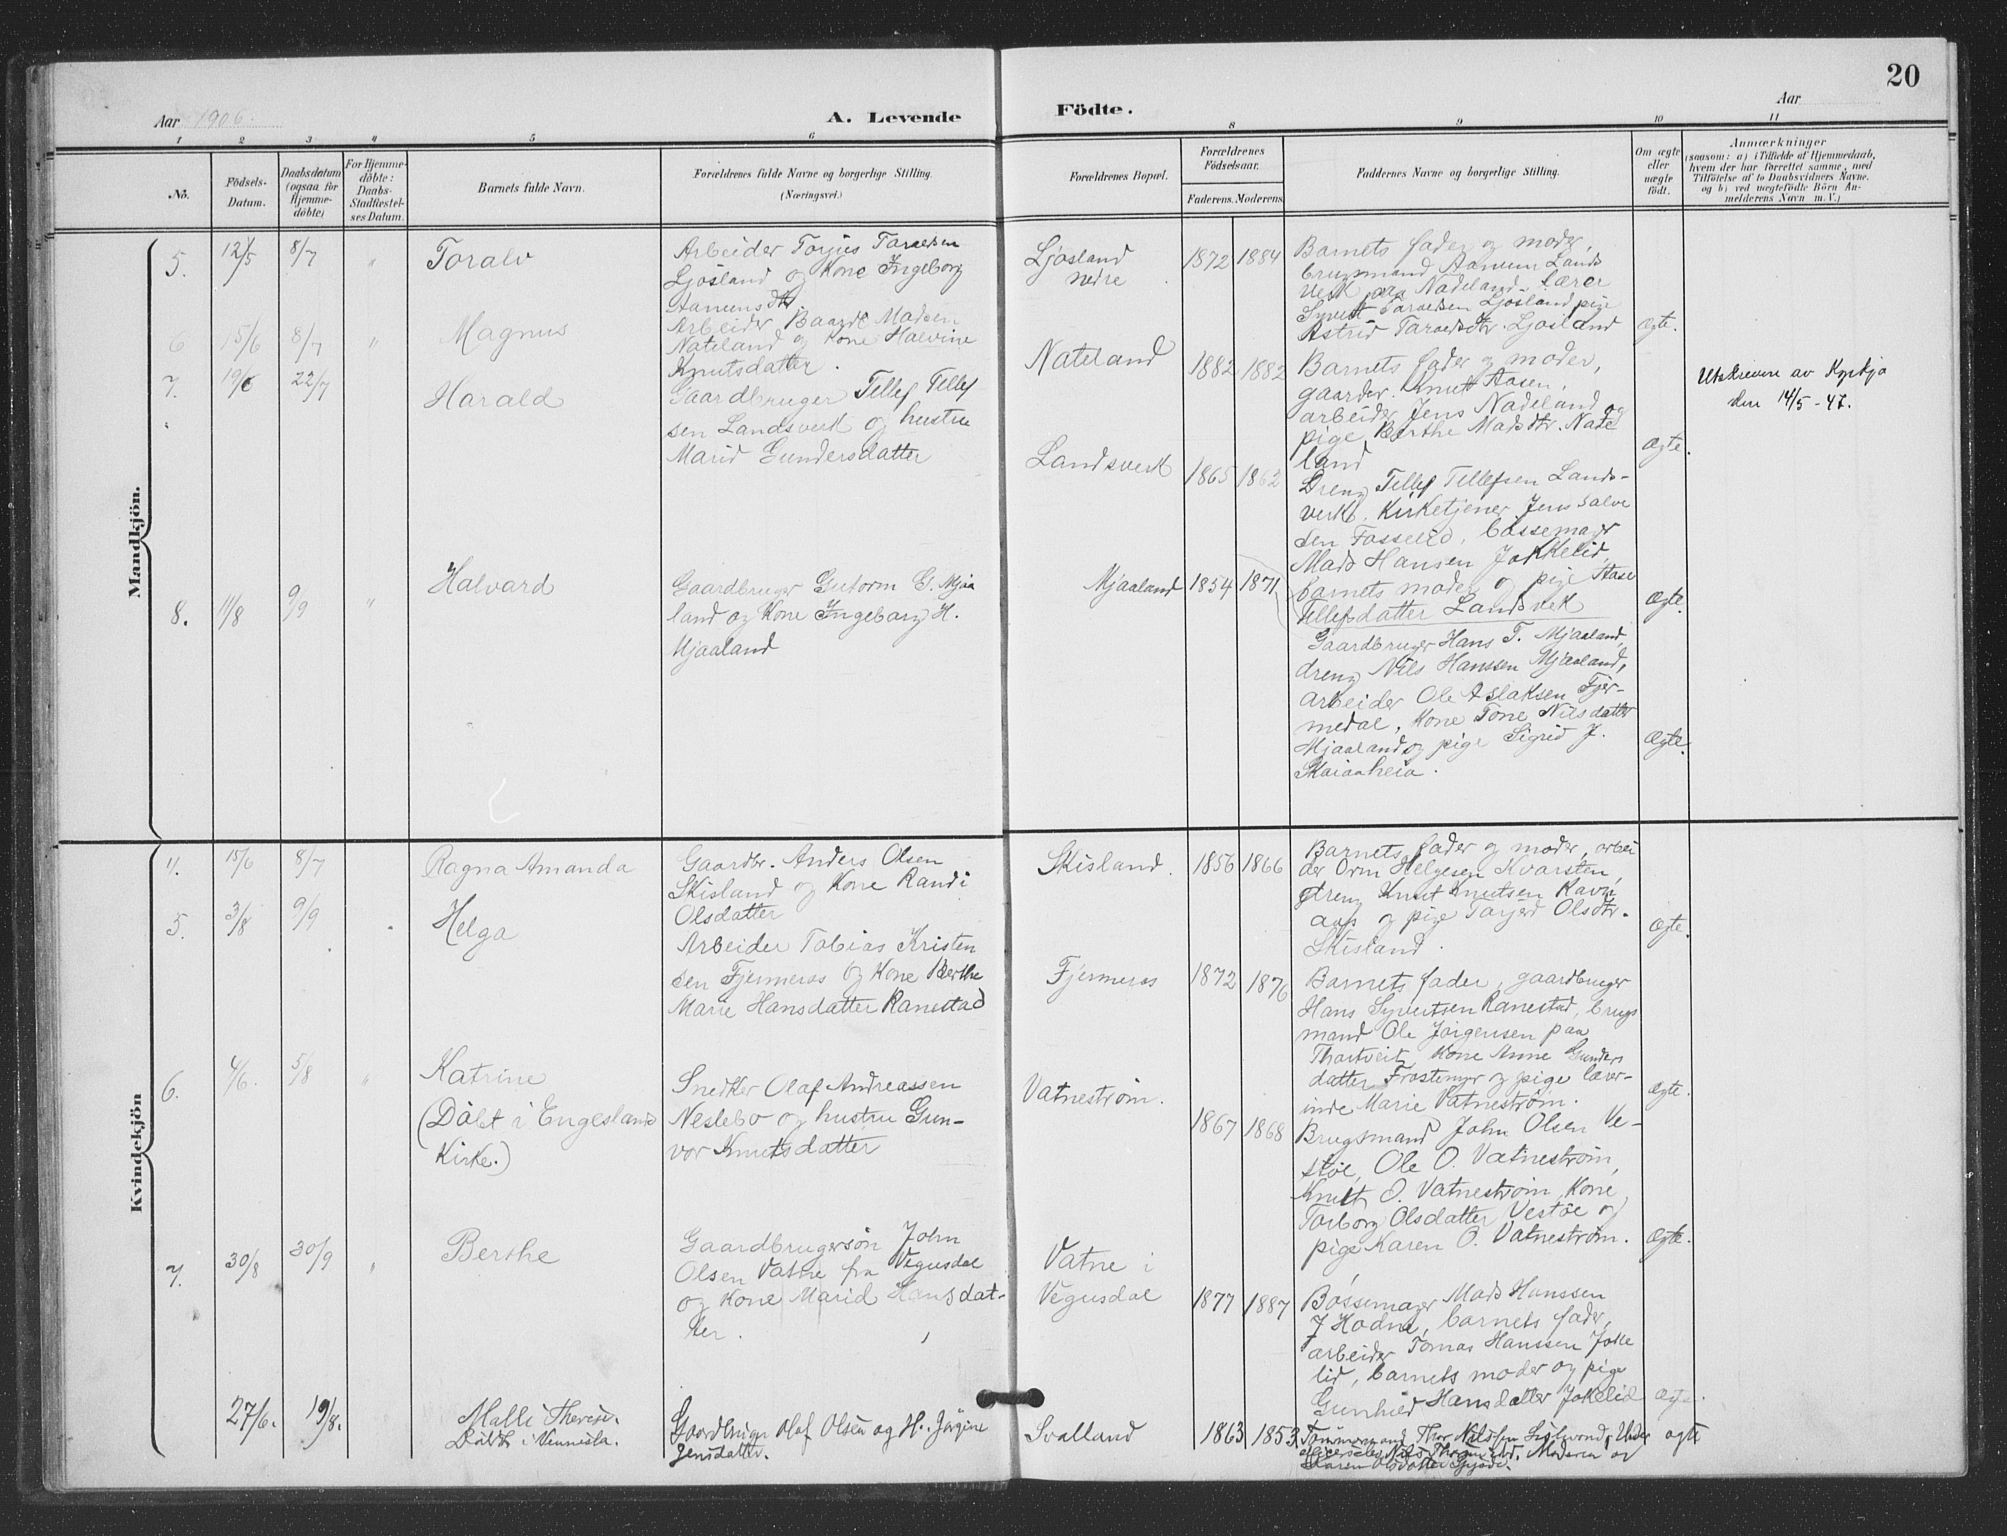 20
Aar 1906.
A. Levende
Födte.
Aar
1
2
3
4
5
6
8
9
10
11
No.
Födsels-
Datum.
Daabsdatum
(ogsaa for
Hjemme-
döbte)
For Hjemme-
döbte:
Daabs-
Stadfæstel-
ses Datum.
Barnets fulde Navn.
Forældrenes fulde Navne og borgerlige Stilling.
(Næringsvei.)
Forældrenes Bopæl.
Forældrenes
Födselsaar.
Faderens.
Moderens.
Faddernes Navne og borgerlige Stilling.
Om ægte
eller
uægte
födt.
Anmærkninger
(saasom: a) i Tilfælde af Hjemmedaab,
hvem der har forrettet samme, med
Tilföielse af to Daabsvidners Navne.
og b) ved uegtefödte Börn An-
melderens Navn m. V.)
Mandkjön.
5.
12/5
8/7
"
Toralv
Arbeider Torjus Taraldsen
Ljosland og Kone Ingeborg
Aanunsdtr.
Ljosland
nedre
1872
1884
Barnets fader og moder,
brugsmand Aanund Lands
verk paa Nadeland. Lærer
Syvert Taraldsen Ljosland pige
Astrid Taraldsdtr. Ljosland
ægte.
6
15/6
8/7
"
Magnus
Arbeider Baard Madsen
Nateland og Kone Halvine
Knutsdatter.
Nateland
1882
1882
Barnets fader og moder,
gaardbr. Knut Aasen,
arbeider Jens Nadeland og
pige Berthe Madsdtr. Nade
land
ægte.
Utskrevne av Kyrkja
den 14/5-47.
7.
19/6
22/7
Harald
Gaardbruger Tellef Tellef
sen Landsverk og hustru
Marid Gundersdatter
Landsverk
1865
1862
Dreng Tellef Tellefsen Lands-
verk. Kirketjener Jens Salve
sen Fosselid, bøssemager
Mads Hansen Jokkelid,
barnets moder og pige Aase
Tellefsdatter Landsverk
ægte.
8.
11/8
9/9
"
Halvard
Gaardbruger Gutorm G. Mjaa
land og Kone Ingeborg H.
Mjaaland
Mjaaland
1854
1871
Gaardbruger Hans T. Mjaaland,
dreng Nils Hanssen Mjaaland,
arbeider Ole Aslaksen Fjer-
medal, Kone Tone Nilsdatter
Mjaaland og pige Sigrid J.
Skaiaaheia.
ægte.
Kvindekjön
4.
15/6
8/7
Ragna Amanda
Gaardbr. Anders Olsen
Skisland og Kone Randi
Olsdatter
Skisland.
1856
1866
Barnets fader og moder, arbei
der Orm Helgesen Kvarsten,
dreng Knut Knutsen Ravn
aas og pige Tarjerd Olsdtr.
Skisland.
ægte.
5.
3/8
9/9
Helga
Arbeider Tobias Kristen
sen Fjermeros og Kone Berthe
Marie Hansdatter Ranestad
Fjermeros
1872
1876
Barnets fader, gaardbruger
Hans Syvertsen Ranestad, brugs
mand Ole Jørgensen paa
Thortveit, Kone Anne Gunders
datter Frostemyr og pige lærer-
inde Marie Vatnestrøm.
ægte.
6.
4/6.
5/8
"
Katrine
(Døbt i Engeslands
Kirke.)
Snedker Olaf Andreassen
Neslebo og hustru Gun-
vor Knutsdatter
Vatnestrøm.
1867
1868
Brugsmand John Olsen Ve-
støe, Ole O. Vatnestrøm,
Knut O. Vatnestrøm, Kone
Torborg Olsdatter Vestøe og
pige Karen O. Vatnestrøm.
ægte.
7.
30/8
30/9
"
Berthe
Gaardbrugersøn John
Olsen Vatne fra Vegusdal
og Kone Marid Hansdat-
ter.
Vatne i
Vegusdal
1877
1887
Bøssemager Mads Hanssen
J Hodne, barnets fader,
arbeider Tomas Hanssen Jokke
lid, barnets moder og pige
Gunhild Hansdatter Jokelid
ægte.
27/6.
19/8.
Malli Therese.
Døbt i Vennesla.
Gaardbruger Olaf Olsen og H. Jørgine
Jensdatter.
Svalland
1863
1853
Tømmermand Thor Nilssen
Moderen og
Karen Olsdatter
ægte